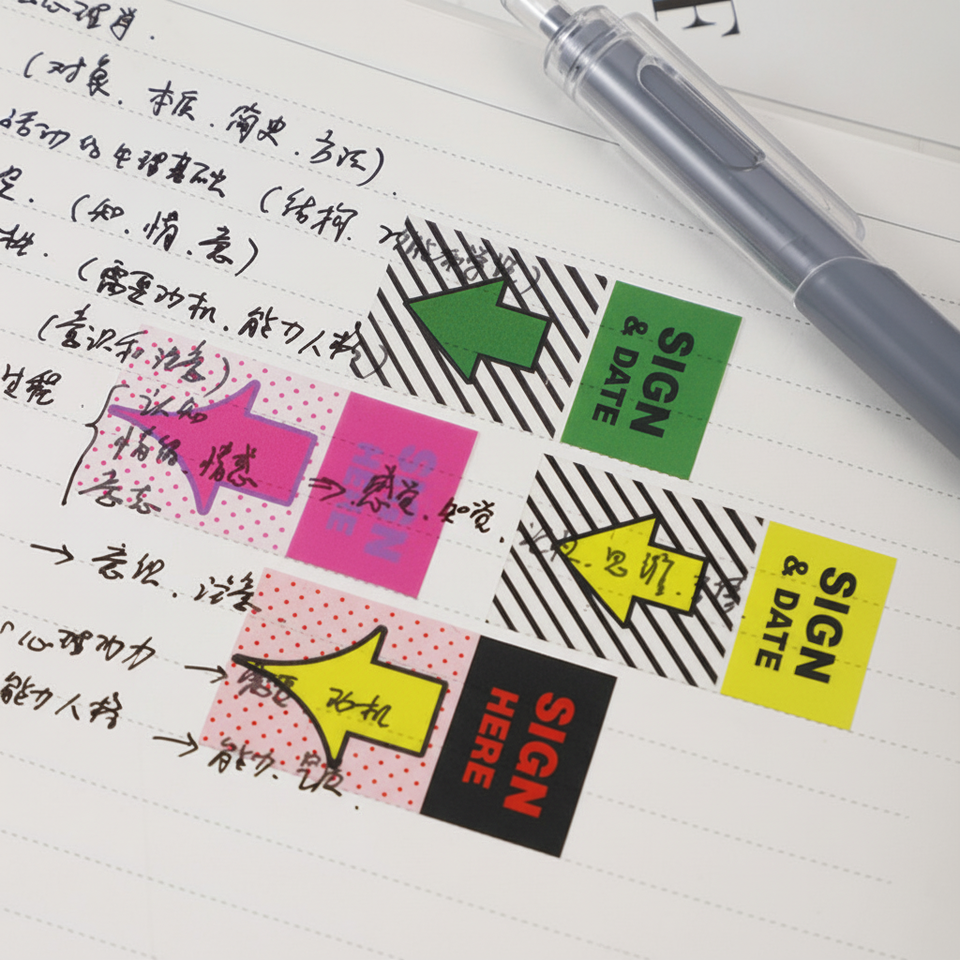 F
心理肖.
(对象.本质.简史.方法).
活动的生理基础(结构.
(知.情.意)
(需要动机.能力人格)
(意识和注意)
过程
认知
情绪 情感 → 感觉.知觉.
意志
思维
→ 意识.注意
心理动力 → 需要 动机
能力人格 → 能力.气质.
SIGN
& DATE
SIGN
HERE
SIGN
& DATE
SIGN
HERE